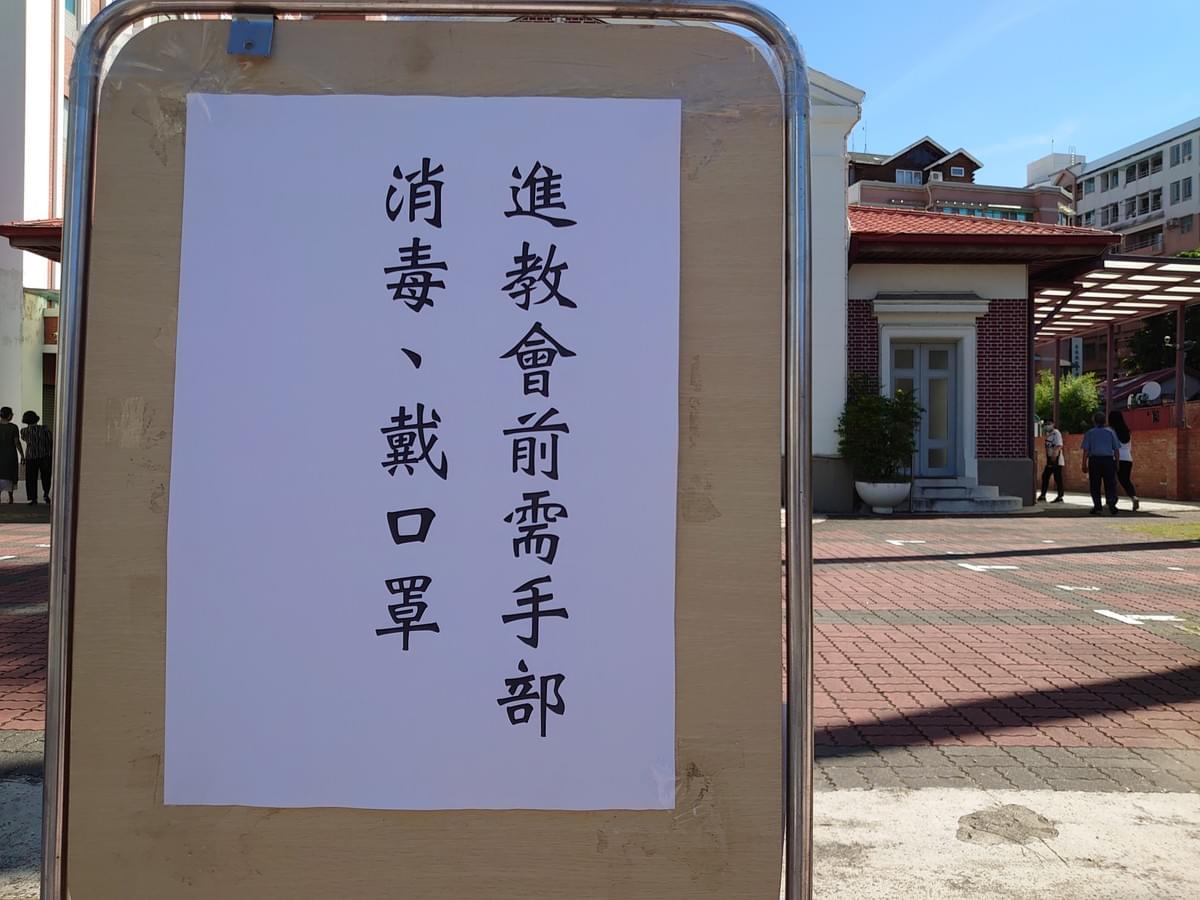 進教會前需手部
消毒、戴口罩